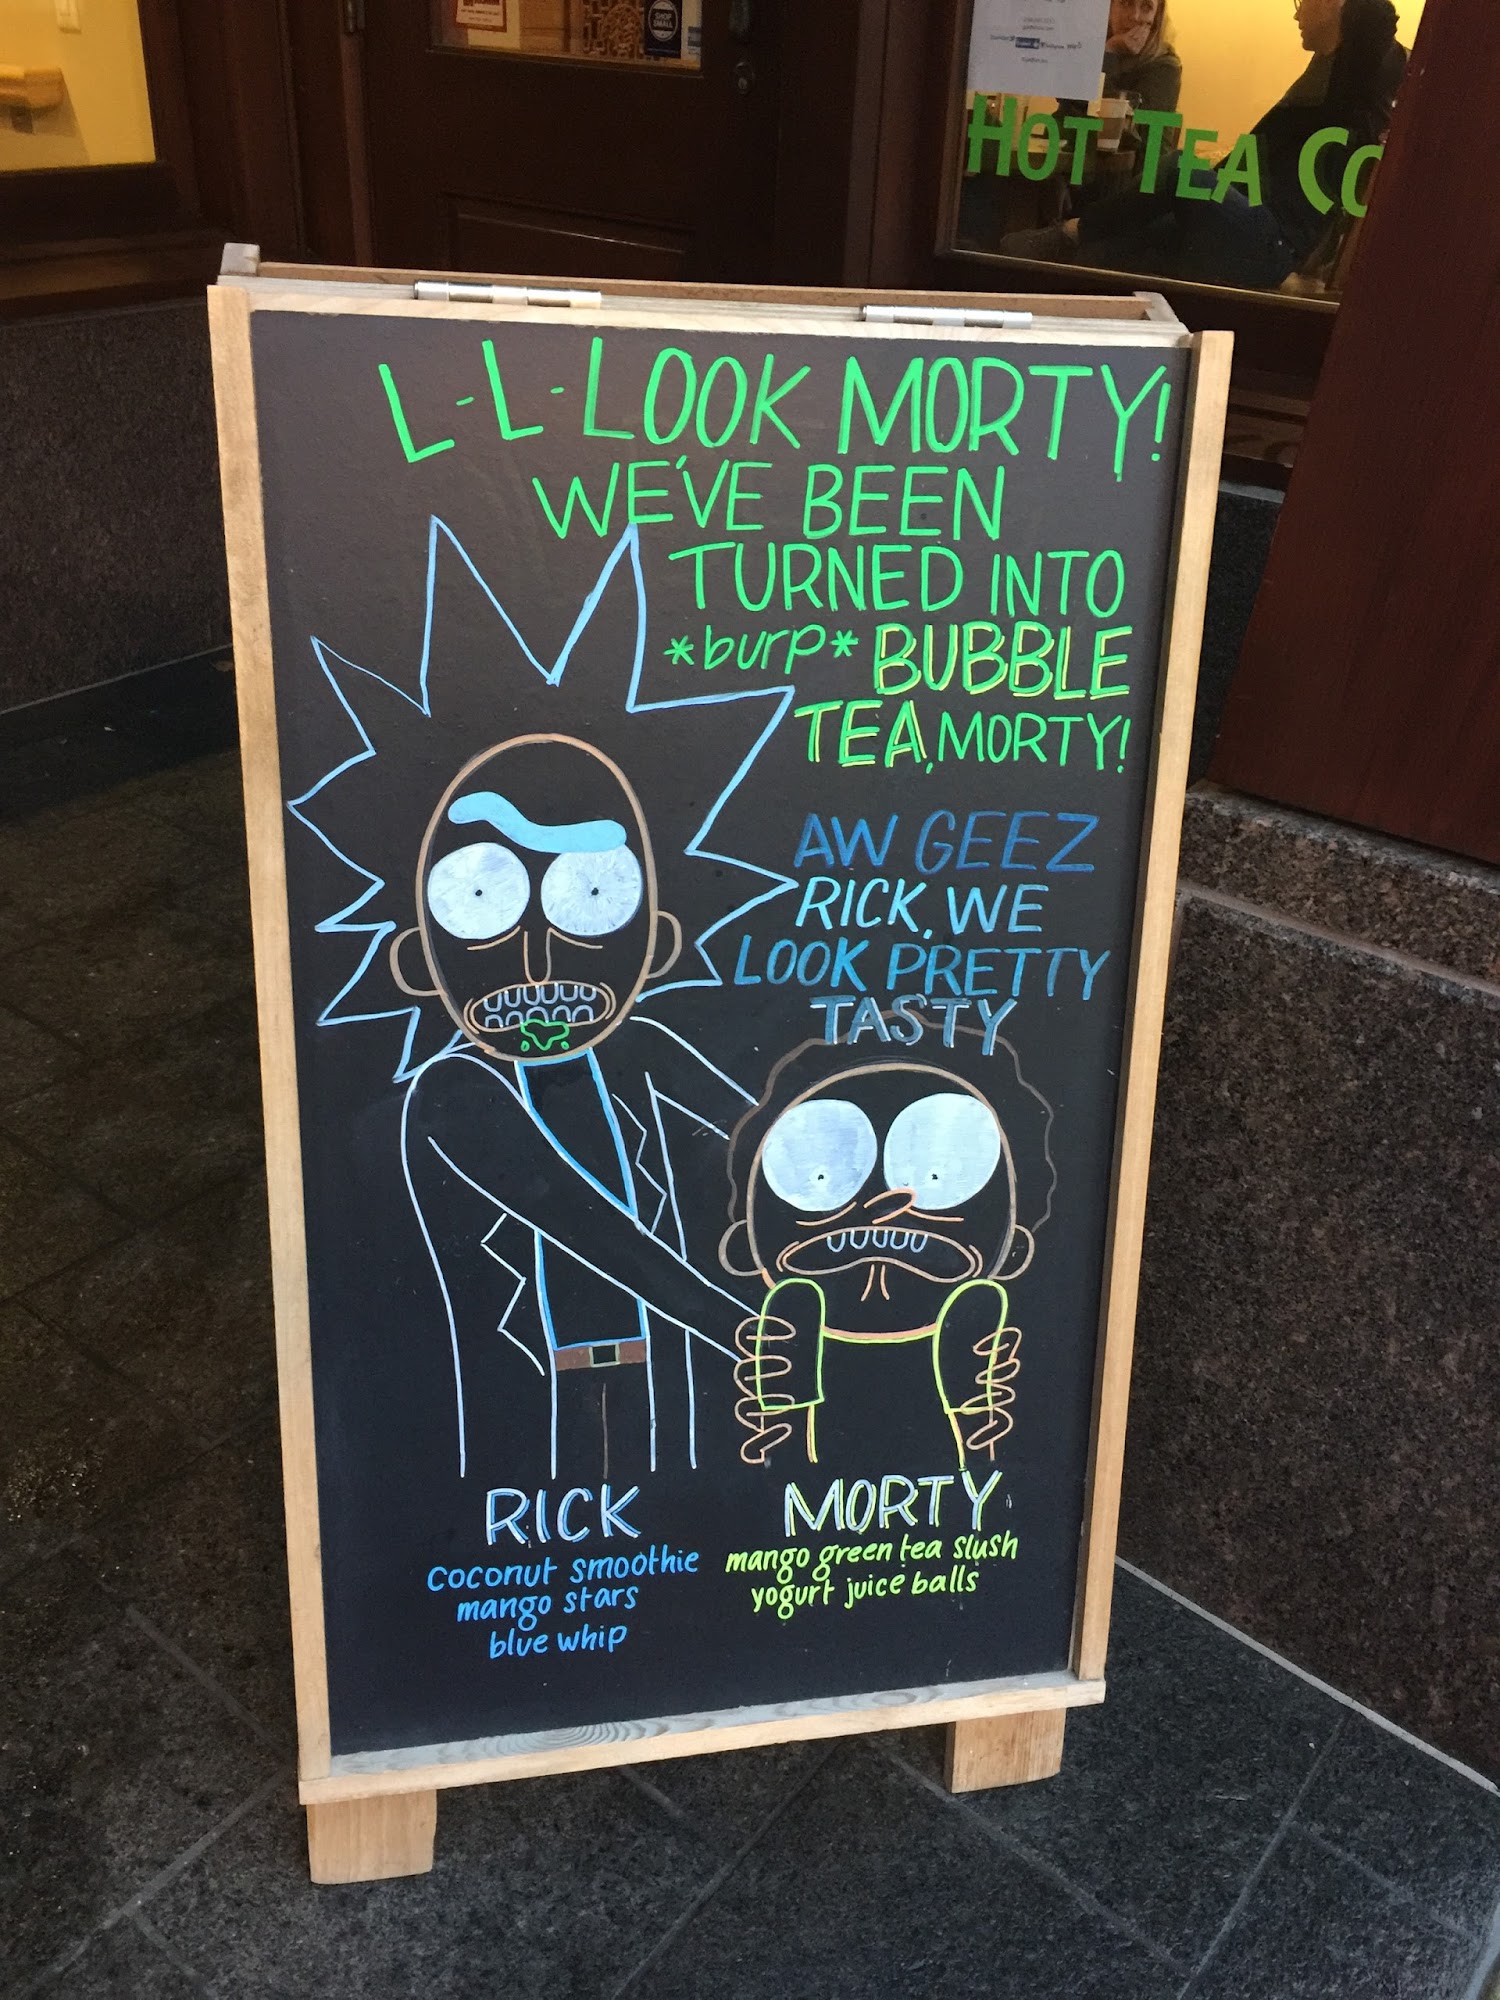 SHOP
SMALL
HOT TEA CO
L-L-LOOK MORTY!
WE'VE BEEN
TURNED INTO
*burp* BUBBLE
TEA, MORTY!
AW GEEZ
RICK, WE
LOOK PRETTY
TASTY
RICK
coconut smoothie
mango stars
blue whip
MORTY
mango green tea slush
yogurt juice balls